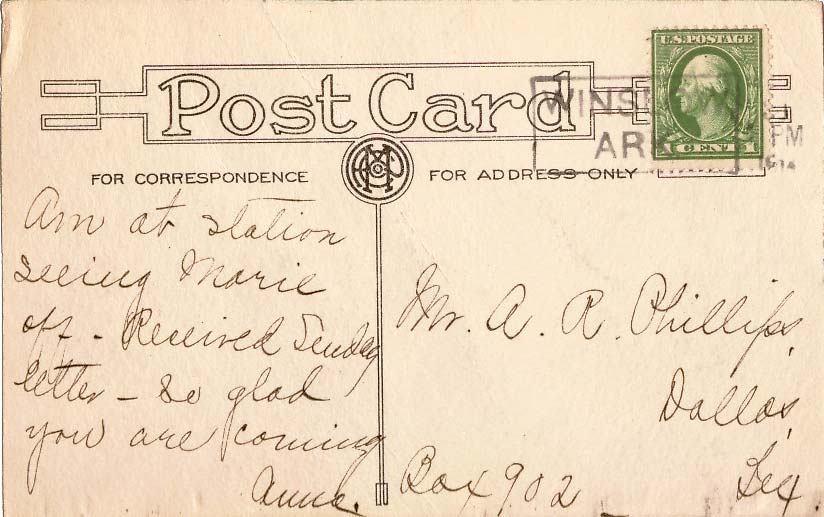 Post Card
U.S. POSTAGE
ARK
PM
CENT
FOR CORRESPONDENCE
FOR ADDRESS ONLY
Am at station
seeing Marie
off - Received Sunday
letter - So glad
you are coming
Anna.
Mr. A. R. Phillips,
Dallas,
Box 902 Tex